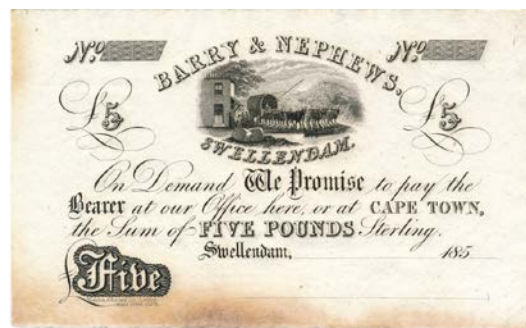 No No
BARRY & NEPHEWS,
£5 £5
SWELLENDAM.
On Demand We Promise to pay the
Bearer at our Office here, or at CAPE TOWN,
the Sum of FIVE POUNDS Sterling.
Swellendam, 185
£Five